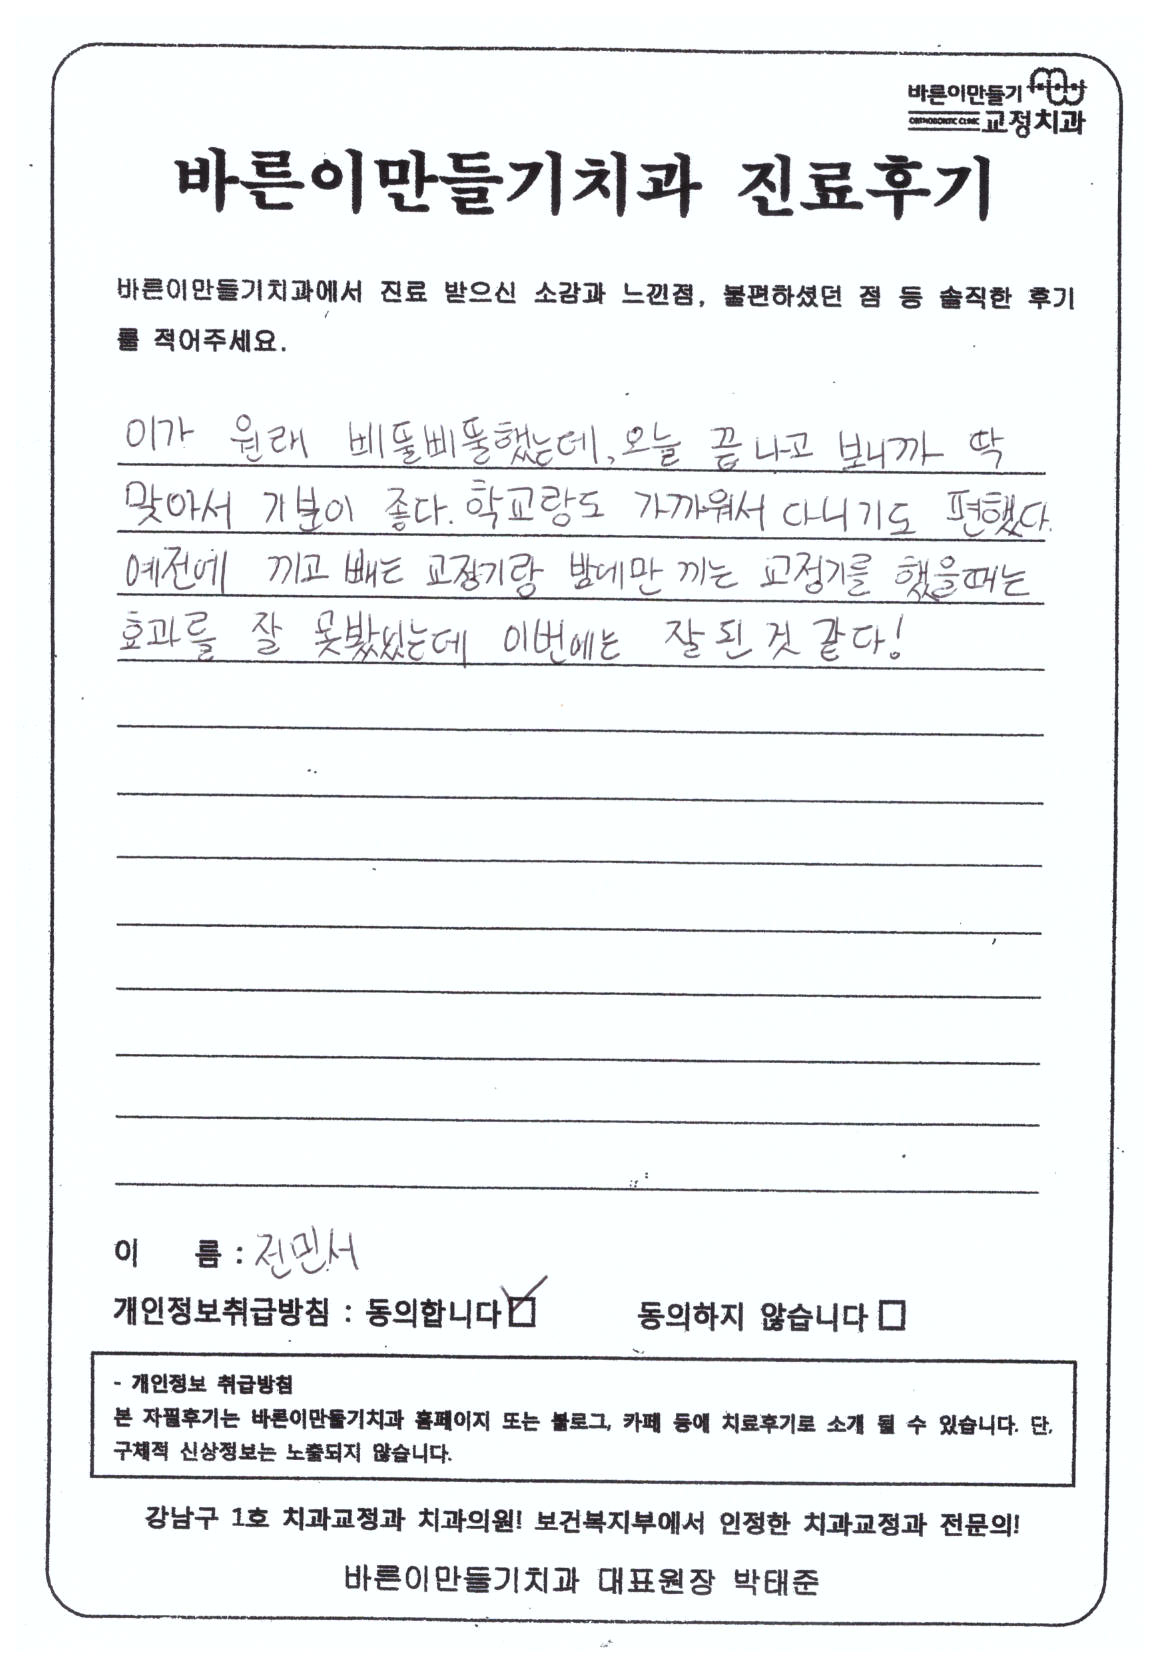 바른이만들기
ORTHODONTIC CLINIC 교정치과
바른이만들기치과 진료후기
바른이만들기치과에서 진료 받으신 소감과 느낀점, 불편하셨던 점 등 솔직한 후기
를 적어주세요.
이가 원래 삐뚤삐뚤했는데, 오늘 끝나고 보니까 딱
맞아서 기분이 좋다. 학교랑도 가까워서 다니기도 편했다.
예전에 끼고 빼는 교정기랑 밤에만 끼는 교정기를 했을때는
효과를 잘 못봤었는데 이번에는 잘 된 것 같다!
이 름 : 전민서
개인정보취급방침 : 동의합니다 동의하지 않습니다
- 개인정보 취급방침
본 자필후기는 바른이만들기치과 홈페이지 또는 블로그, 카페 등에 치료후기로 소개 될 수 있습니다. 단,
구체적 신상정보는 노출되지 않습니다.
강남구 1호 치과교정과 치과의원! 보건복지부에서 인정한 치과교정과 전문의!
바른이만들기치과 대표원장 박태준